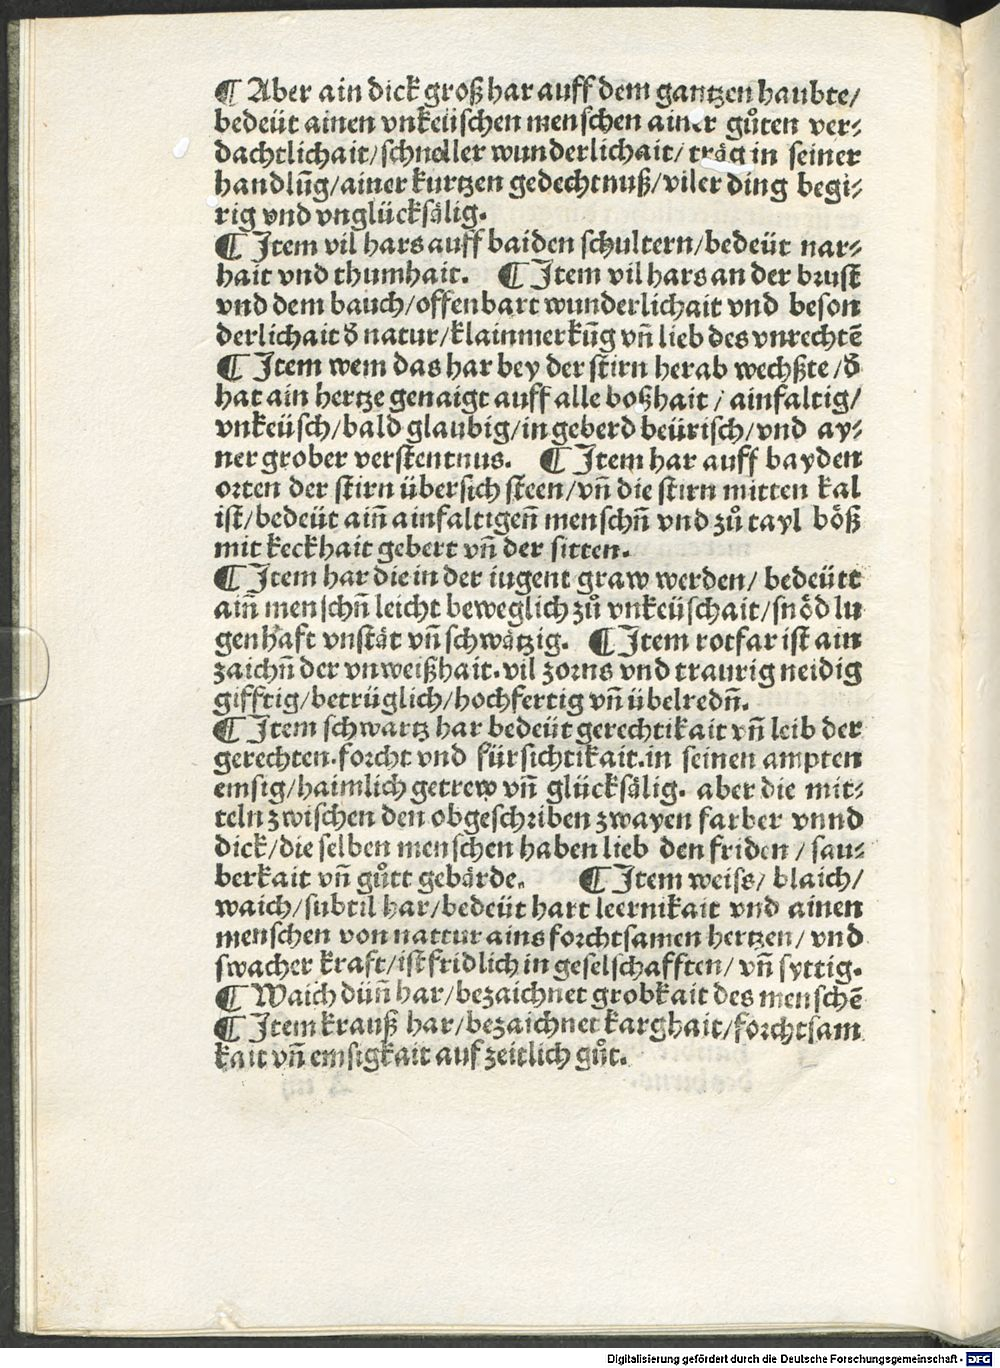 ¶ Aber ain dick groß har auff dem gantzen haubte/
bedeüt ainen vnkeüschen menschen ainer gůten ver⸗
dachtlichait/schneller wunderlichait/ träg in seiner
handlūg/ainer kurtzen gedechtnuß/viler ding begi⸗
rig vnd vnglücksälig.
¶ Item vil hars auff baiden schultern/bedeüt nar⸗
hait vnd thumhait. ¶ Item vil hars an der brust
vnd dem bauch/offenbart wunderlichait vnd beson
derlichait ð natur/klainmerkūg vñ lieb des vnrechtē
¶ Item wem das har bey der stirn herab wechßte/ð
hat ain hertze genaigt auff alle boßhait/ ainfaltig/
vnkeüsch/bald glaubig/in geberd beürisch/vnd ay⸗
ner grober verstentnus. ¶ Item har auff bayden
orten der stirn übersich steen/vñ die stirn mitten kal
ist/bedeüt aiñ ainfaltigeñ menschñ vnd zů tayl böß
mit keckhait gebert vñ der sitten.
¶ Item har die in der iugent graw werden/ bedeütt
aiñ menschñ leicht beweglich zů vnkeüschait/snöd lu
genhaft vnstät vñ schwätzig. ¶ Item rotfar ist ain
zaichñ der vnweißhait.vil zorns vnd traurig neidig
gifftig/betrüglich/hochfertig vñ übelredñ.
¶ Item schwartz har bedeüt gerechtikait vñ leib der
gerechten.forcht vnd fürsichtikait.in seinen ampten
emsig/haimlich getrew vñ glücksälig. aber die mit⸗
teln zwischen den obgeschriben zwayen farber vnnd
dick/die selben menschen haben lieb den friden/ sau⸗
berkait vñ gůtt gebärde. ¶ Item weiss/ blaich/
waich/subtil har/bedeüt hart leernikait vnd ainen
menschen von nattur ains forchtsamen hertzen/ vnd
swacher kraft/ist fridlich in geselschafften/ vñ syttig.
¶ Waich düñ har/bezaichnet grobkait des menschē
¶ Item krauß har/bezaichnet karghait/forchtsam
kait vñ emsigkait auf zeitlich gůt.
Digitalisierung gefördert durch die Deutsche Forschungsgemeinschaft - DFG